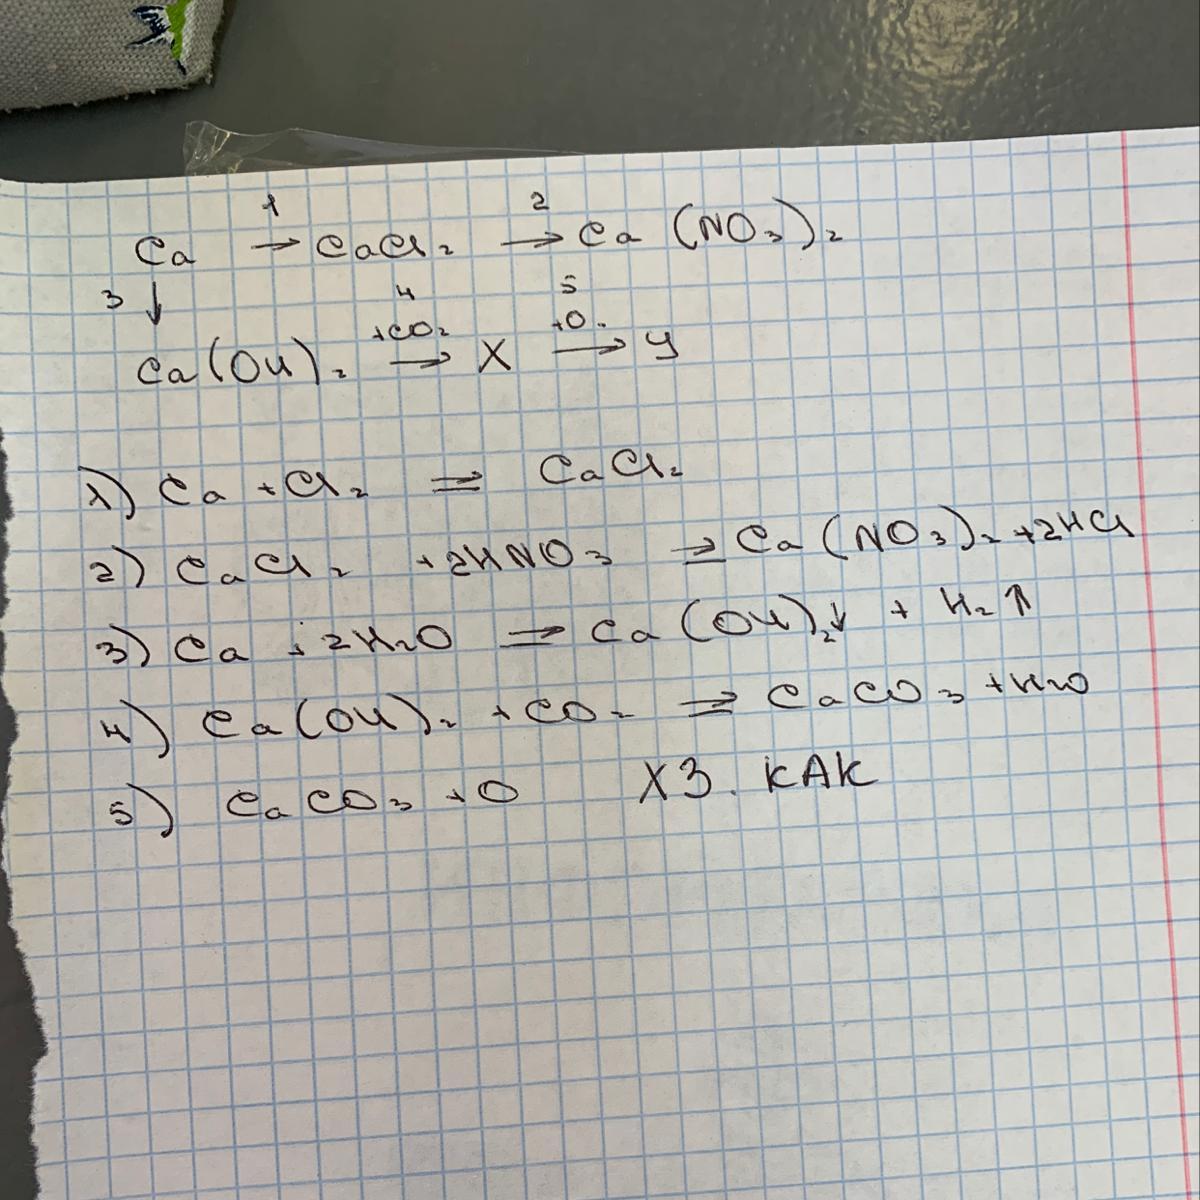 1 2
Ca → CaCl₂ → Ca (NO₃)₂
3 ↓ 4 5
+CO₂ +O.
Ca(OH)₂ → X → Y
1) Ca + Cl₂ = CaCl₂
2) CaCl₂ + 2HNO₃ → Ca(NO₃)₂ + 2HCl
3) Ca + 2H₂O = Ca(OH)₂↓ + H₂↑
4) Ca(OH)₂ + CO₂ = CaCO₃ + H₂O
5) CaCO₃ + O ХЗ. КАК